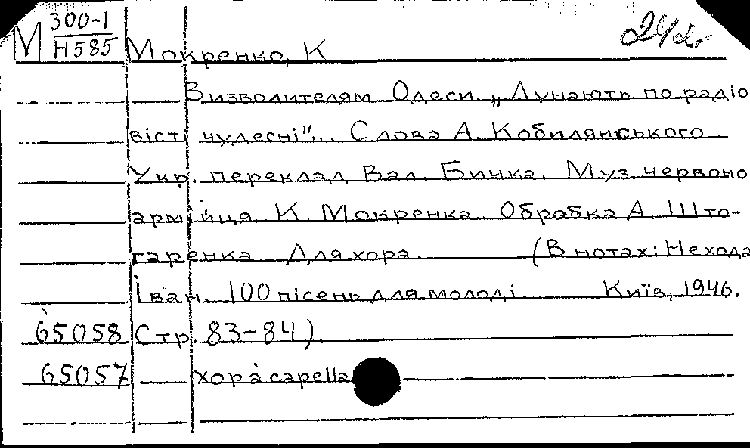 М 300-1 242
Н585 Мокренко, К
Визволителям Одеси. „Лунають по радіо
вісті чудесні". Слова А. Кобилянського
Укр. переклад Вал. Бичка. Муз. червоно
армійця К. Мокренка. Обрабка А. Што-
гаренка Для хора. (В нотах: Нехода
Іван. 100 пісень для молоді Київ, 1946.
65058 Стр. 83-84)
65057 хор à capella